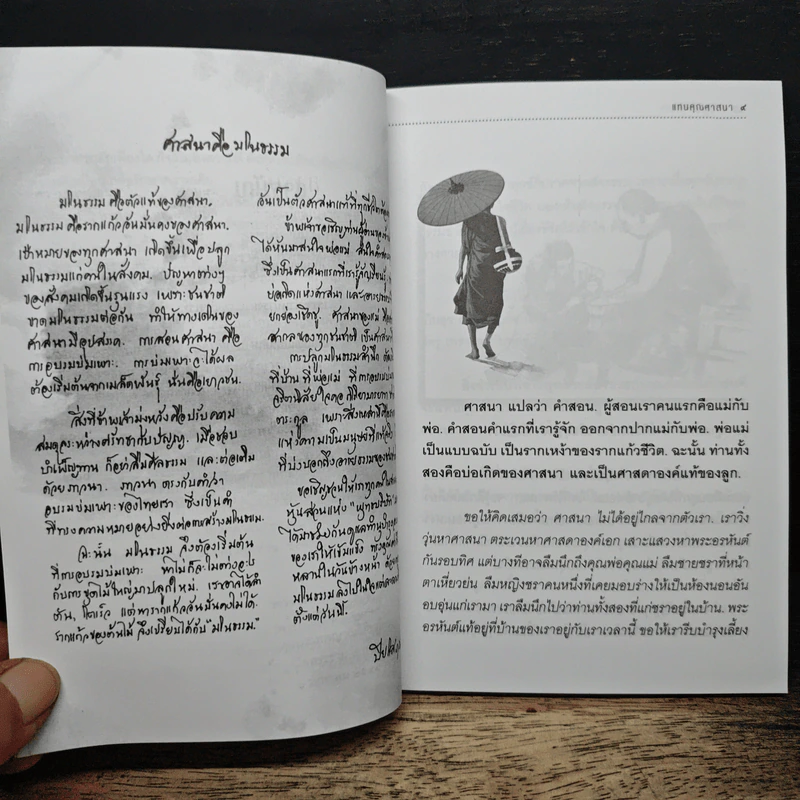 ศาสนาคือมโนธรรม
มโนธรรม คือตัวแท้ของศาสนา.
มโนธรรม คือรากแก้วอันมั่นคงของศาสนา.
เป้าหมายของทุกศาสนา เกิดขึ้นเพื่อปลูก
มโนธรรมแก่คนในสังคม. ปัญหาต่างๆ
ของสังคมเกิดขึ้นรุนแรง เพราะชนชาติ
ขาดมโนธรรมต่อกัน ทำให้ทางเดินของ
ศาสนามีอุปสรรค. การสอนศาสนา คือ
การอบรมบ่มเพาะ. การบ่มเพาะจะได้ผล
ต้องเริ่มต้นจากเมล็ดพันธุ์ นั่นคือเยาวชน.
สิ่งที่ข้าพเจ้ามุ่งหวังคือปรับความ
สมดุลระหว่างศรัทธากับปัญญา. เมื่อชอบ
บำเพ็ญทาน ก็อย่าลืมศีลธรรม และต่อเติม
ด้วยภาวนา. ภาวนา ตรงกับคำว่า
อบรมบ่มเพาะของไทยเรา ซึ่งเป็นคำ
ที่ทางความหมายอย่างยิ่งต่อการสร้างมโนธรรม.
ฉะนั้น มโนธรรม จึงต้องเริ่มต้น
ที่การอบรมบ่มเพาะ ทำไมก็จะไม่ต่างอะไร
กับการขุดไม้ใหญ่มาปลูกใหม่. เราอาจได้
ต้น, โตเร็ว แต่หารากแก้วอันมั่นคงไม่ได้.
รากแก้วของต้นไม้ จึงเปรียบได้กับ "มโนธรรม."
อันเป็นตัวศาสนาแท้ที่ทุกชีวิต
ข้าพเจ้าขอเชิญท่านผู้อ่าน
ได้หันมาสนใจพ่อแม่
ซึ่งเป็นศาสนาแรกที่เรารู้จัก
บ่อเกิดแห่งศาสนา และอารยธรรม
ยกย่องเชิดชู. ศาสนาของแม่ คือ
สากลของทุกชนชาติ เป็นศาสนา
การปลูกมโนธรรมสำนึก ต้อง
ที่บ้าน ที่พ่อแม่ ที่การอบรมบ่ม
จริตนิสัยใจคอ กิริยามารยาท
ตระกูล เพราะสิ่งเหล่านี้คือ
แห่งความเป็นมนุษย์ที่แท้จริง
ที่บ่งบอกถึงอารยธรรมของ
ขอเชิญชวนให้เราทุกคนใน
หุ้นส่วนแห่ง
ได้มาช่วยกันดูแลทำนุบำรุง
ของเราให้เข้มแข็ง
หลานในวันข้างหน้า ด้วย
มโนธรรม ลงไปในใจ
ตั้งแต่วันนี้.
แทนคุณศาสนา ๙
ศาสนา แปลว่า คำสอน. ผู้สอนเราคนแรกคือแม่กับ
พ่อ. คำสอนคำแรกที่เรารู้จัก ออกจากปากแม่กับพ่อ. พ่อแม่
เป็นแบบฉบับ เป็นรากเหง้าของรากแก้วชีวิต. ฉะนั้น ท่านทั้ง
สองคือบ่อเกิดของศาสนา และเป็นศาสดาองค์แท้ของลูก.
ขอให้คิดเสมอว่า ศาสนา ไม่ได้อยู่ไกลจากตัวเรา. เราวิ่ง
วุ่นหาศาสนา ตระเวนหาศาสดาองค์เอก เสาะแสวงหาพระอรหันต์
กันรอบทิศ แต่บางทีอาจลืมนึกถึงคุณพ่อคุณแม่ ลืมชายชราที่หน้า
ตาเหี่ยวย่น ลืมหญิงชราคนหนึ่งที่เคยมอบร่างให้เป็นห้องนอนอัน
อบอุ่นแก่เรามา เราลืมนึกไปว่าท่านทั้งสองที่แก่ชราอยู่ในบ้าน. พระ
อรหันต์แท้อยู่ที่บ้านของเราอยู่กับเราเวลานี้ ขอให้เรารีบบำรุงเลี้ยง